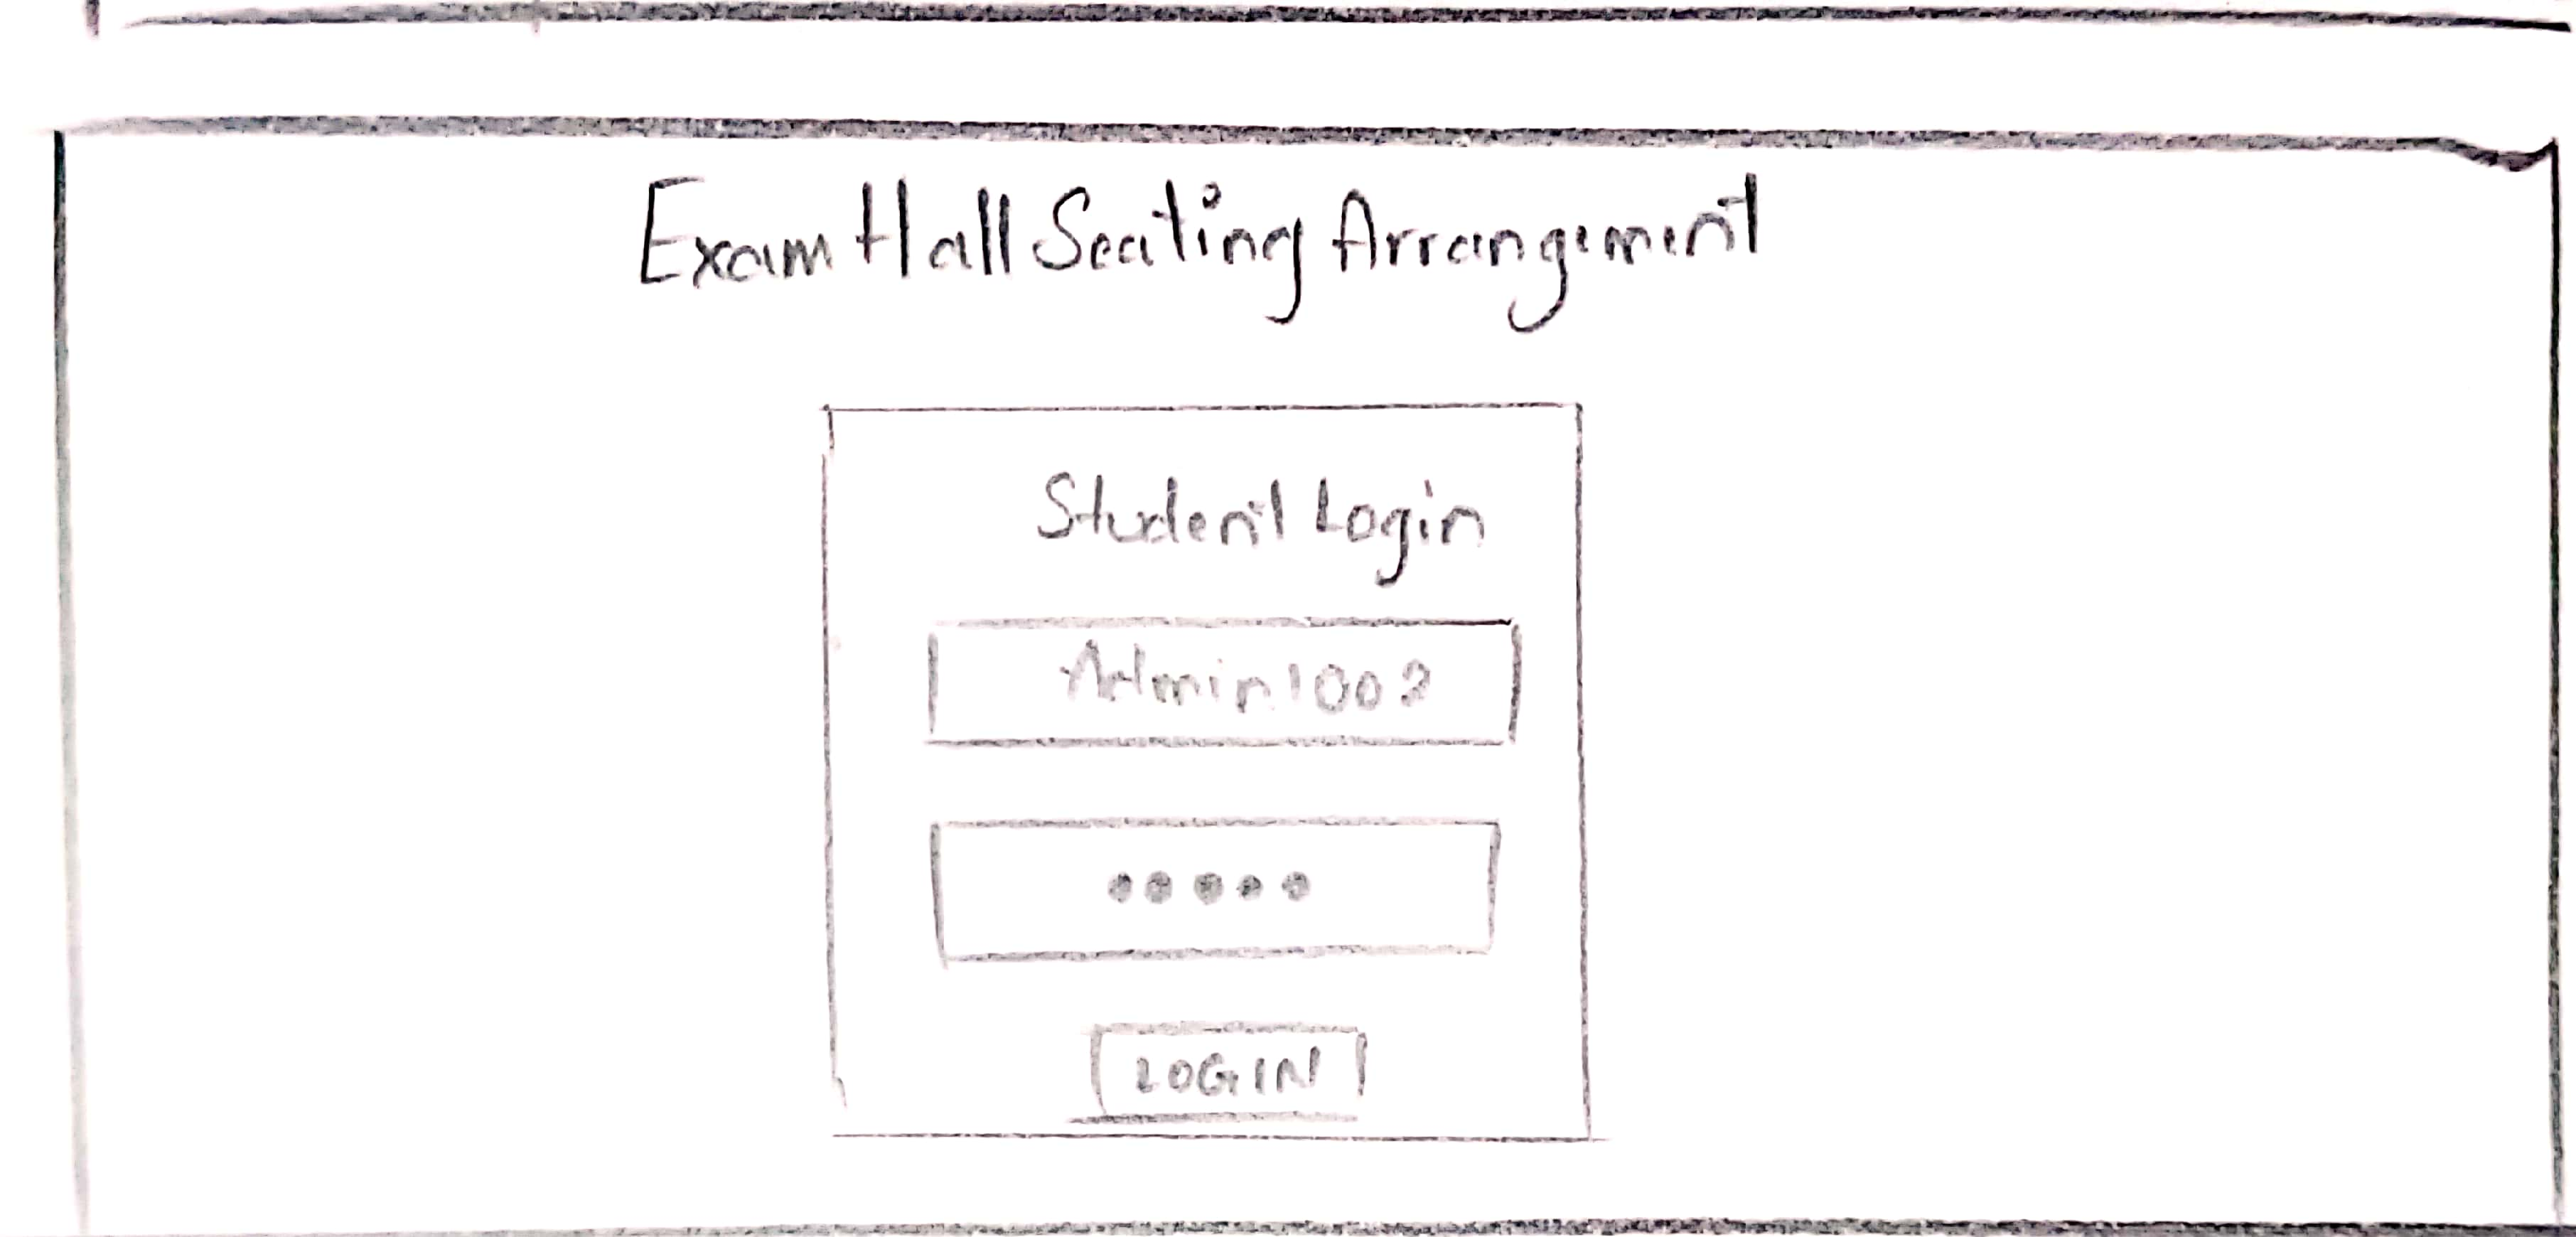 Exam Hall Seating Arrangement
Student Login
Admin1002
•••••
LOGIN